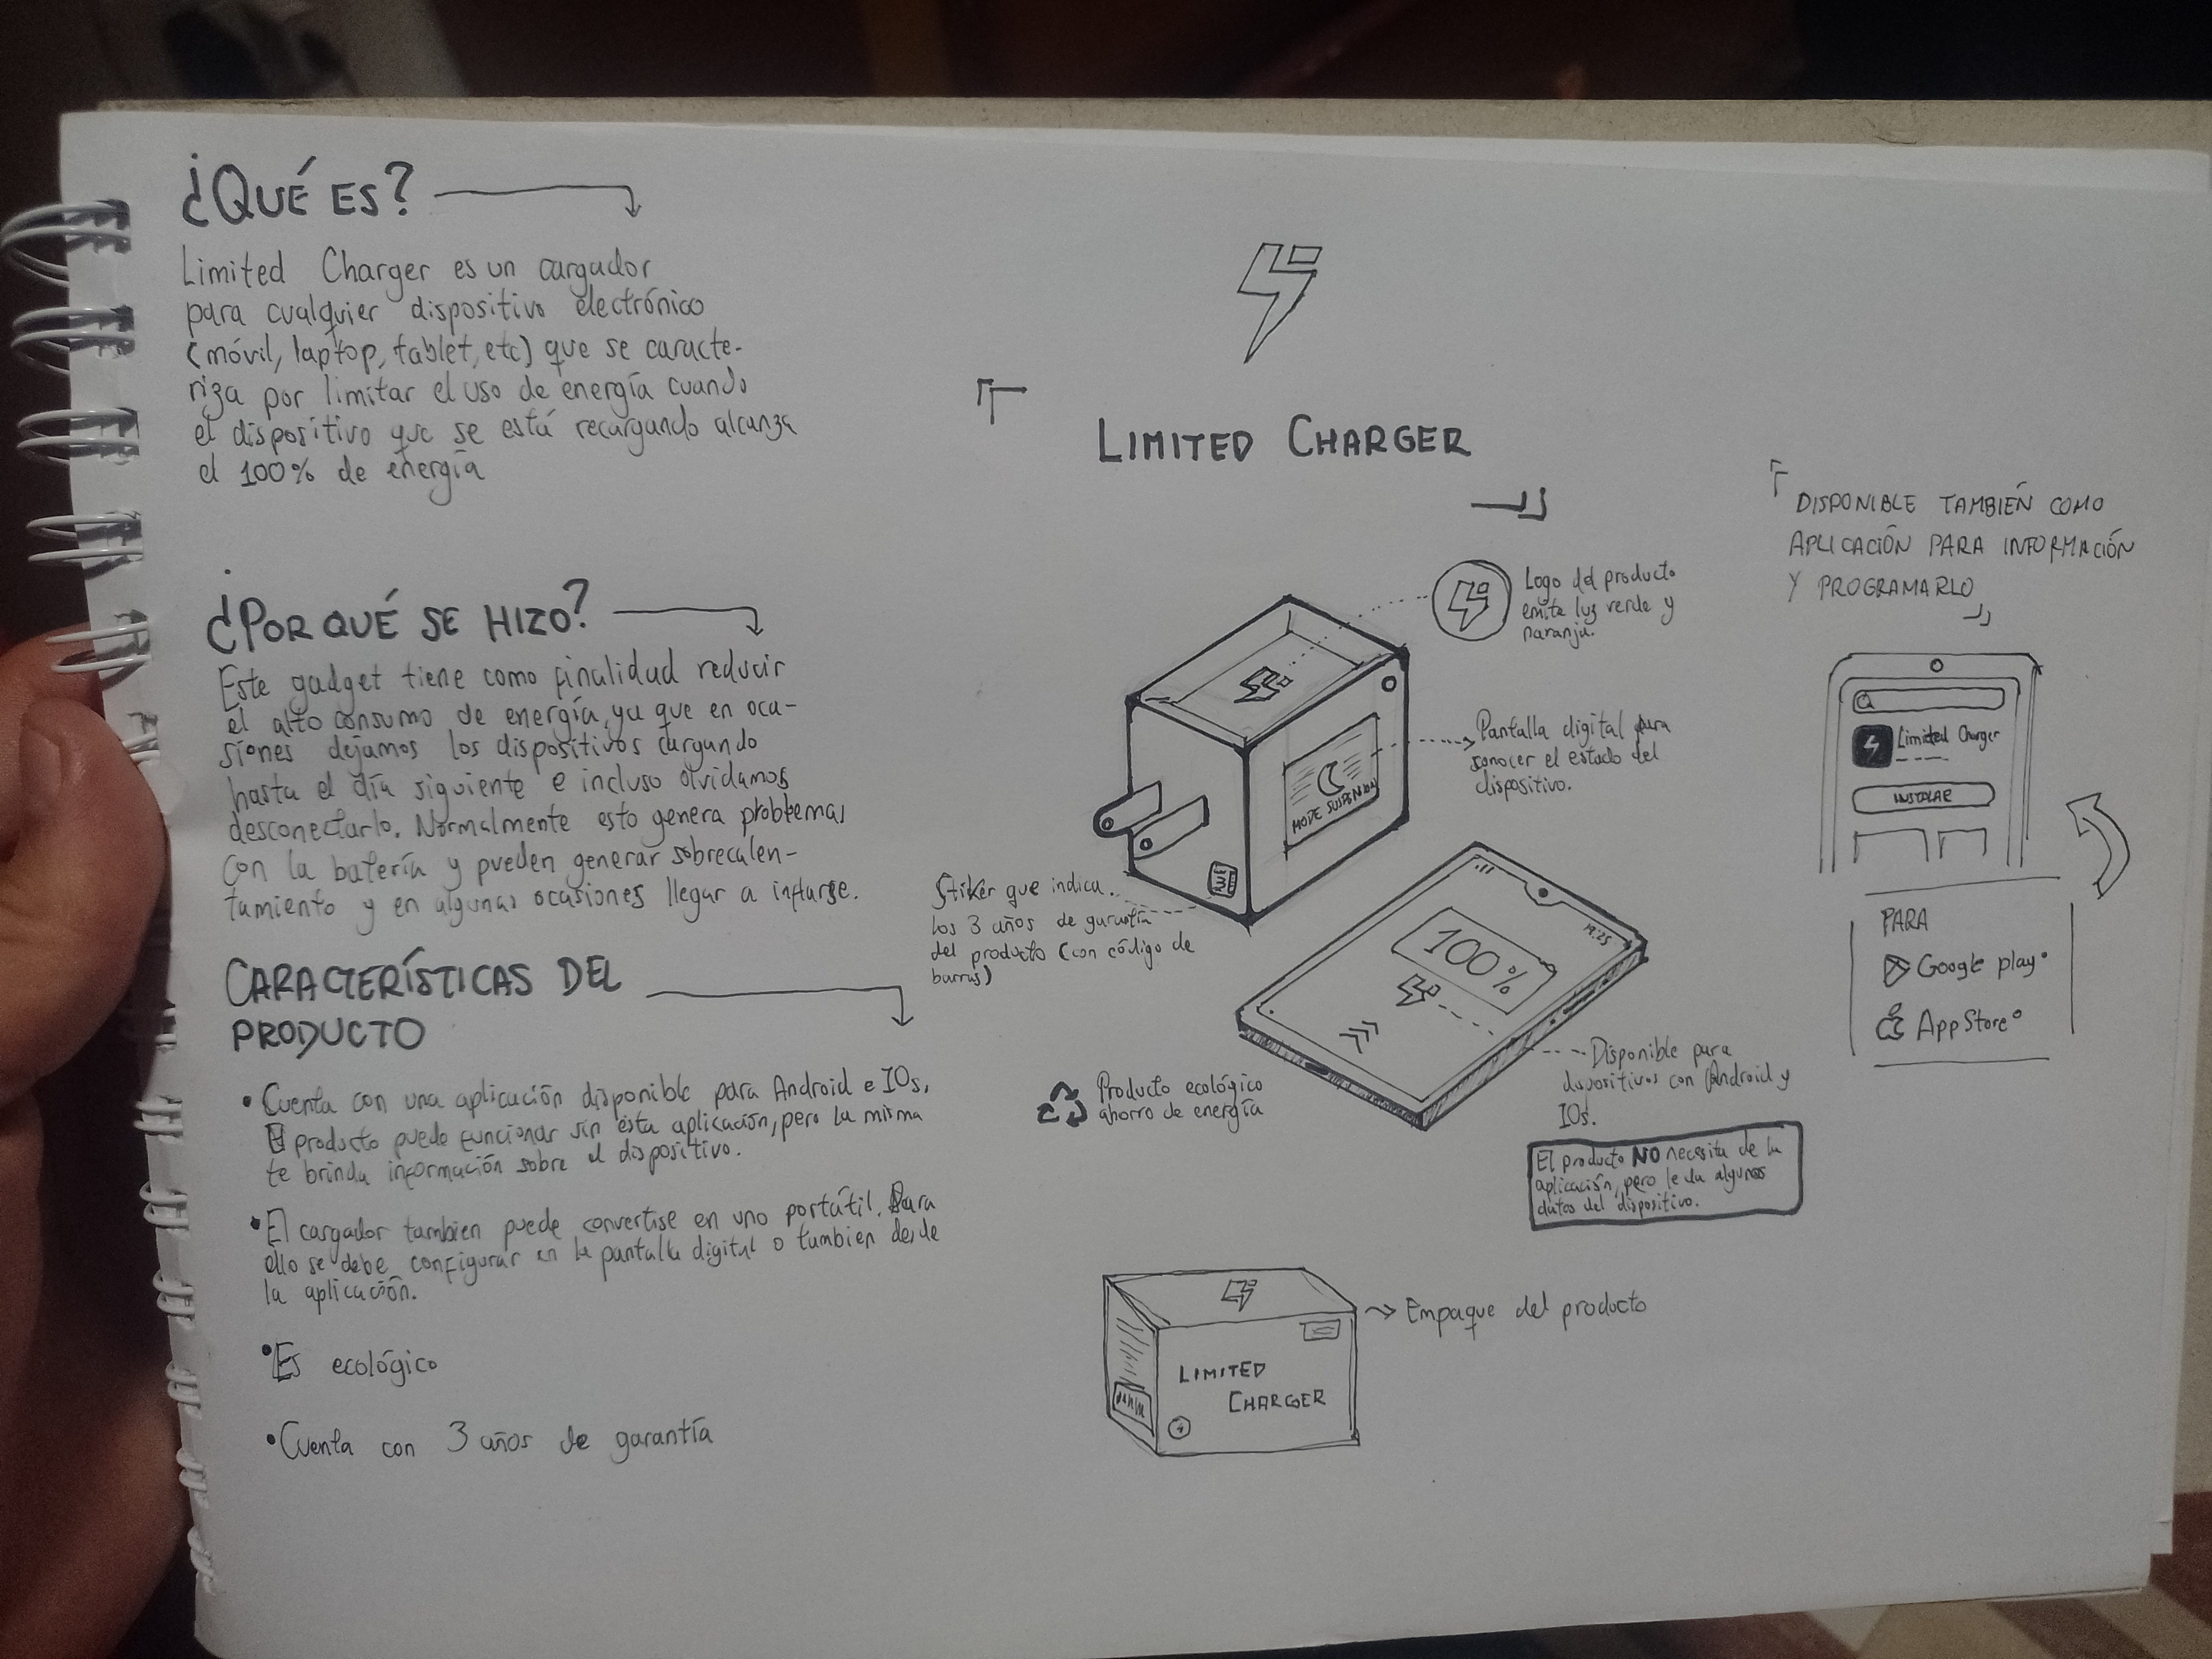 ¿QUÉ ES?
Limited Charger es un cargador
para cualquier dispositivo electrónico
(móvil, laptop, tablet, etc) que se caracte-
riza por limitar el uso de energía cuando
el dispositivo que se está recargando alcanza
el 100% de energía
¿POR QUÉ SE HIZO?
Este gadget tiene como finalidad reducir
el alto consumo de energía, ya que en oca-
siones dejamos los dispositivos cargando
hasta el día siguiente e incluso olvidamos
desconectarlo. Normalmente esto genera problemas
con la batería y pueden generar sobrecalen-
tamiento y en algunas ocasiones llegar a inflarse.
CARACTERÍSTICAS DEL
PRODUCTO
• Cuenta con una aplicación disponible para Android e IOs,
El producto puede funcionar sin esta aplicación, pero la misma
te brinda información sobre el dispositivo.
• El cargador tambien puede convertise en uno portátil. Para
ello se debe configurar en la pantalla digital o tambien desde
la aplicación.
• Es ecológico
• Cuenta con 3 años de garantía
LIMITED CHARGER
Logo del producto
emite luz verde y
naranja.
Pantalla digital para
conocer el estado del
dispositivo.
MODE SUSPENSION
Stiker que indica
los 3 años de garantía
del producto (con código de
barras)
100%
19:25
Disponible para
dispositivos con Android y
IOs.
Producto ecológico
ahorro de energía
El producto NO necesita de la
aplicación, pero le da algunos
datos del dispositivo.
LIMITED
CHARGER
Empaque del producto
DISPONIBLE TAMBIÉN COMO
APLICACIÓN PARA INFORMACIÓN
Y PROGRAMARLO
Limited Charger
INSTALAR
PARA
Google play
App Store